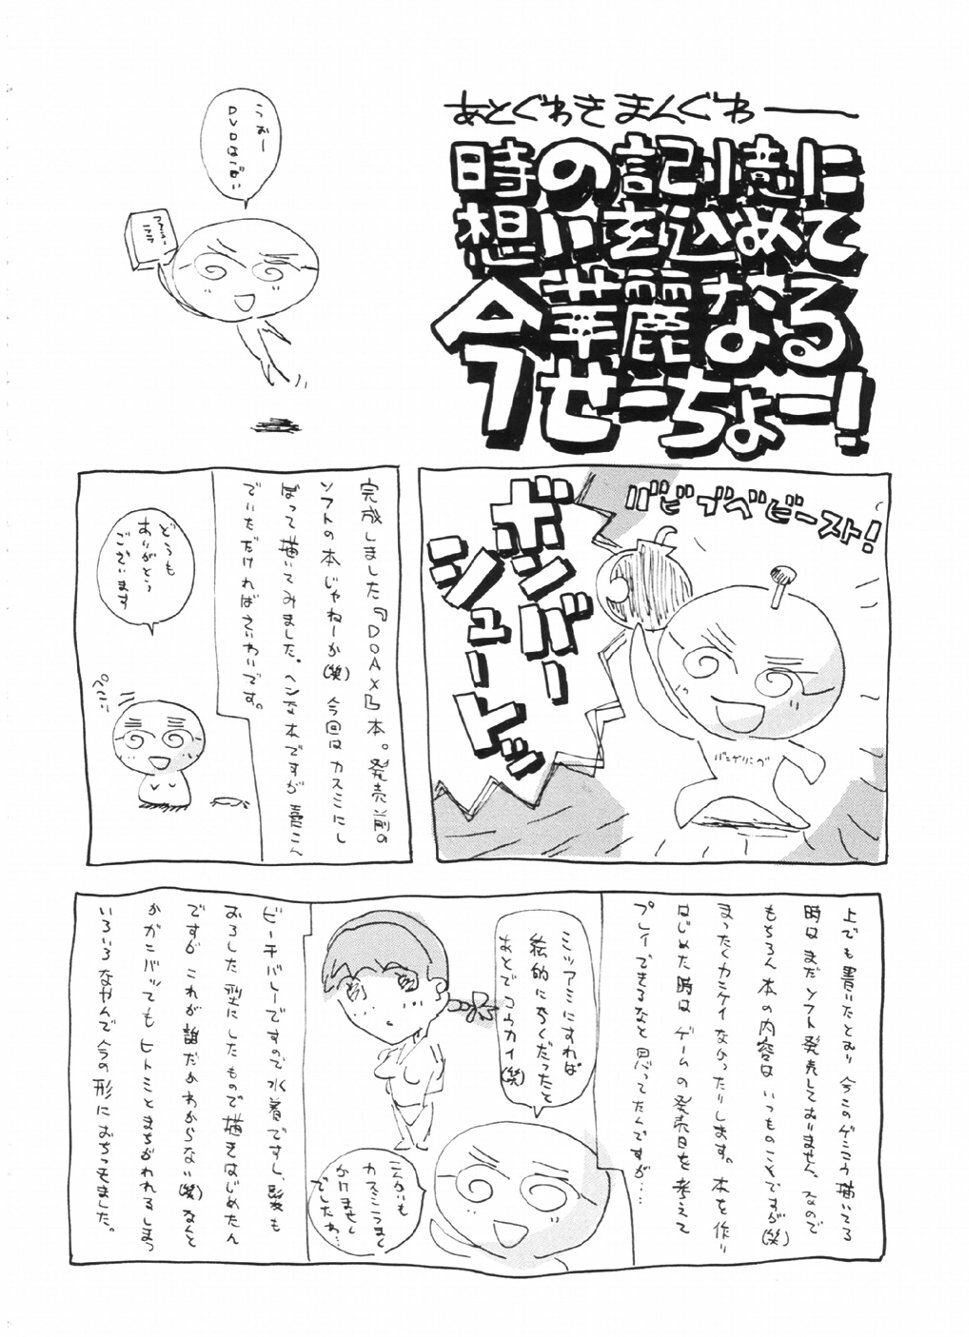 あとぐわき まんぐわー
時の記憶に
想いを込めて
今華麗なる
ぜーちょー!
うおー
バビブベビースト!
ボンバー
シュートッ
バンゲリング
完成しました『DOAX』本。発売前の
ソフトの本じゃねーか(笑) 今回はカスミにし
ぼって描いてみました。ヘンな本ですが喜こん
でいただければさいわいです。
どうも
ありがとう
ございます
ぺこ
上でも書いたとおり今このゲンコウ描いてる
時はまだソフト発売しておりません。なので
もちろん本の内容はいつものことですが(笑)
まったくカンケイなかったりします。本を作り
はじめた時はゲームの発売日を考えて
プレイできるなと思ってたんですが…
ミツアミにすれば
絵的にらくだったと
あとでコウカイ(笑)
こんかいも
カスミうまく
かけません
でしたね
ビーチバレーですので水着ですし、髪も
おろした型にしたもので描きはじめたん
ですが これが誰だかわからない(笑) なんと
かガンバッてもヒトミとまちがわれるしまつ
いろいろなやんで今の形におちつきました。